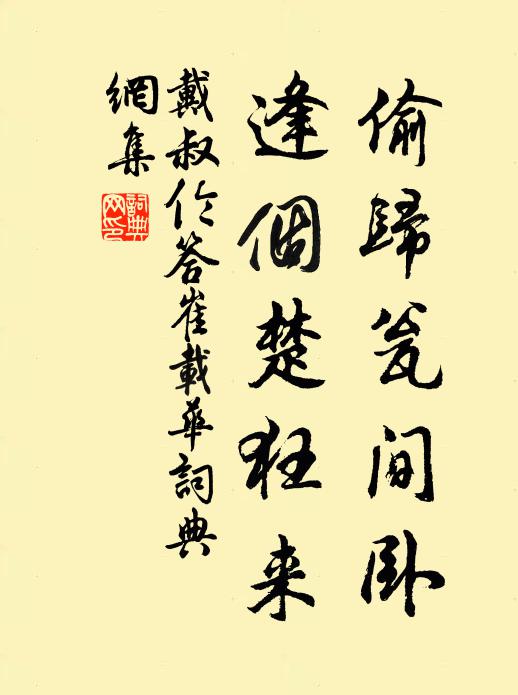 偷歸瓮间卧
逢個楚狂来
戴叔伦答崔載華詞典
網集
詞典
网印